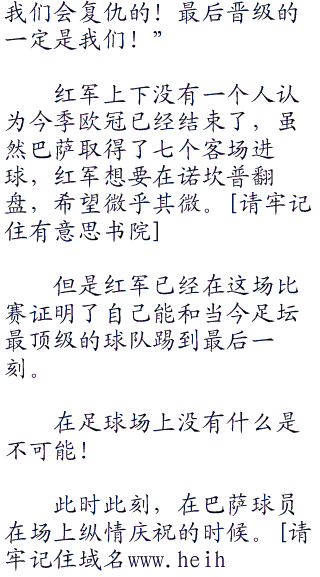 我们会复仇的！最后晋级的
一定是我们！”
红军上下没有一个人认
为今季欧冠已经结束了，虽
然巴萨取得了七个客场进
球，红军想要在诺坎普翻
盘，希望微乎其微。[请牢记
住有意思书院]
但是红军已经在这场比
赛证明了自己能和当今足坛
最顶级的球队踢到最后一
刻。
在足球场上没有什么是
不可能！
此时此刻，在巴萨球员
在场上纵情庆祝的时候。[请
牢记住域名www.heih